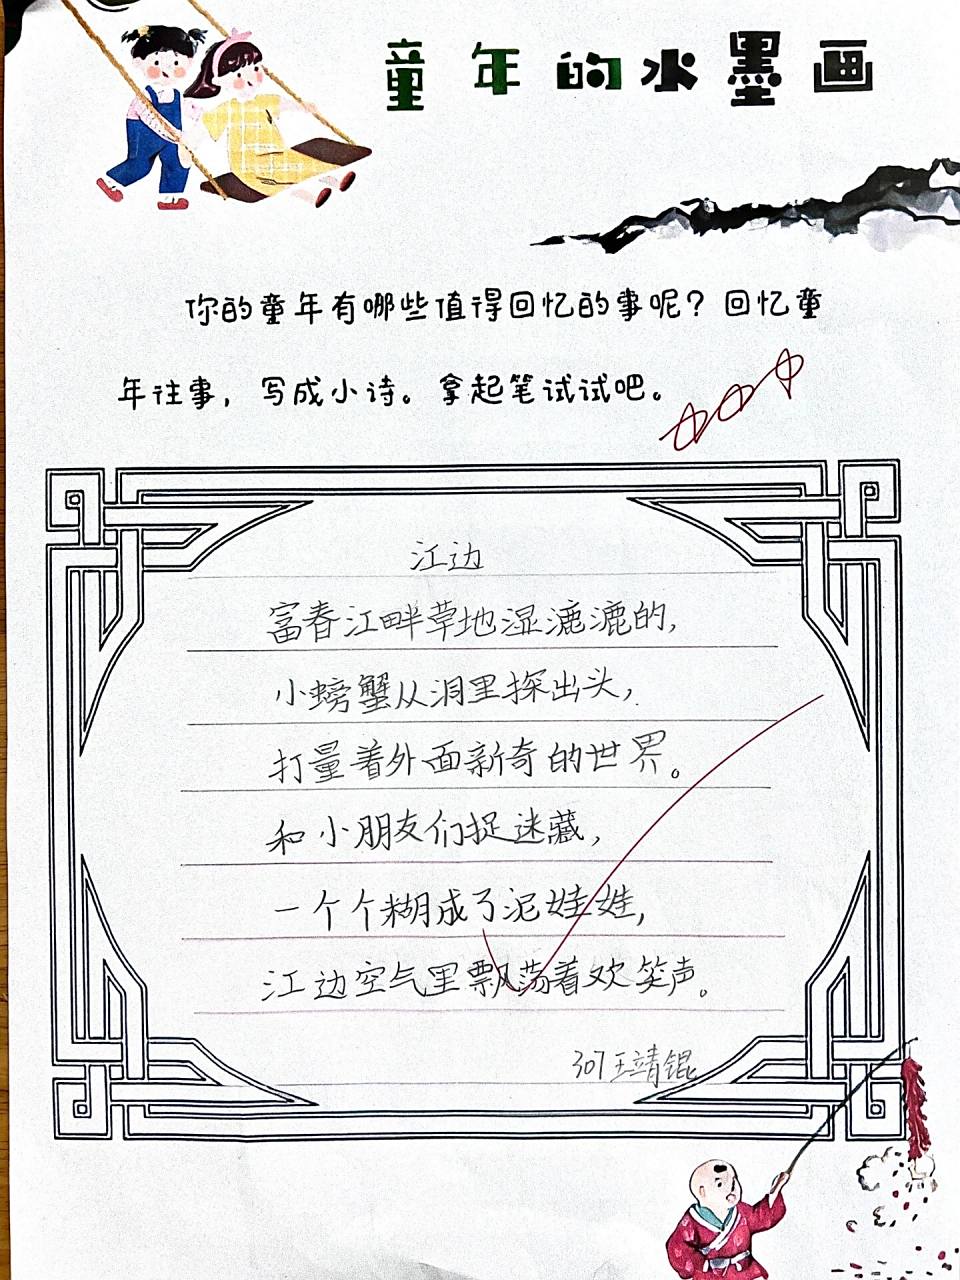 童年的水墨画
你的童年有哪些值得回忆的事呢？回忆童
年往事，写成小诗。拿起笔试试吧。
江边
富春江畔草地湿漉漉的，
小螃蟹从洞里探出头，
打量着外面新奇的世界。
和小朋友们捉迷藏，
一个个糊成了泥娃娃，
江边空气里飘荡着欢笑声。
307 王靖锟